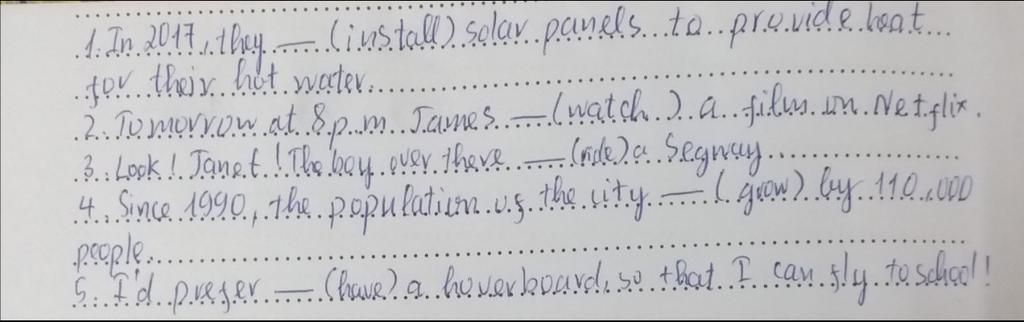 1. In 2017, they — (install) solar panels to provide heat
for their hot water.
2. Tomorrow at 8 p.m. James — (watch) a film on Netflix.
3. Look! Janet! The boy over there — (ride) a Segway
4. Since 1990, the population of the city — (grow) by 110.000
people.
5. I'd prefer — (have) a hoverboard, so that I can fly to school!